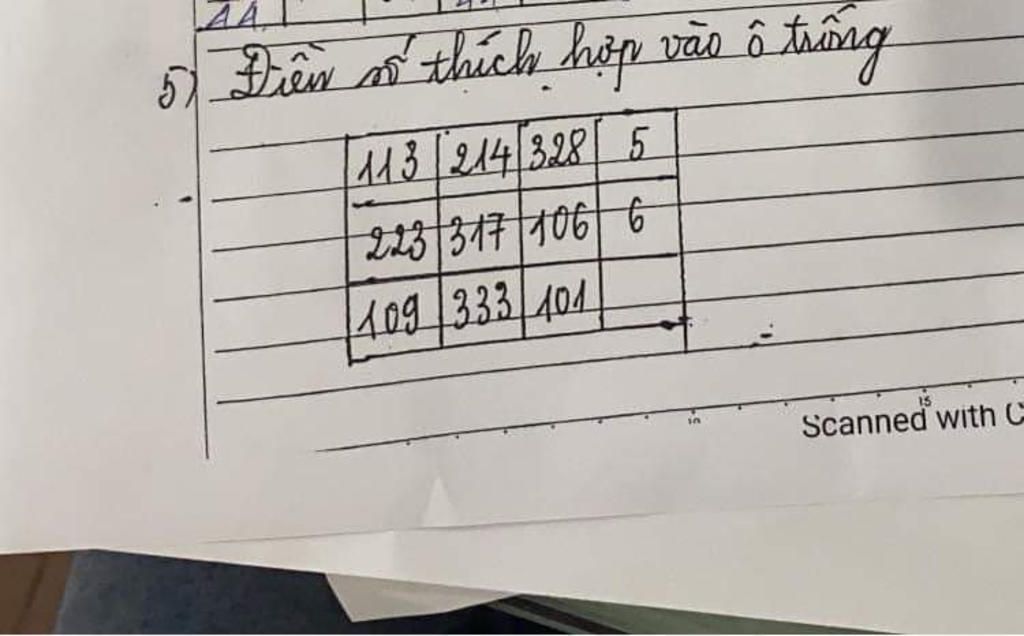 44
5) Điền số thích hợp vào ô trống
113 214 328 5
223 317 106 6
109 333 101
10 15
Scanned with C